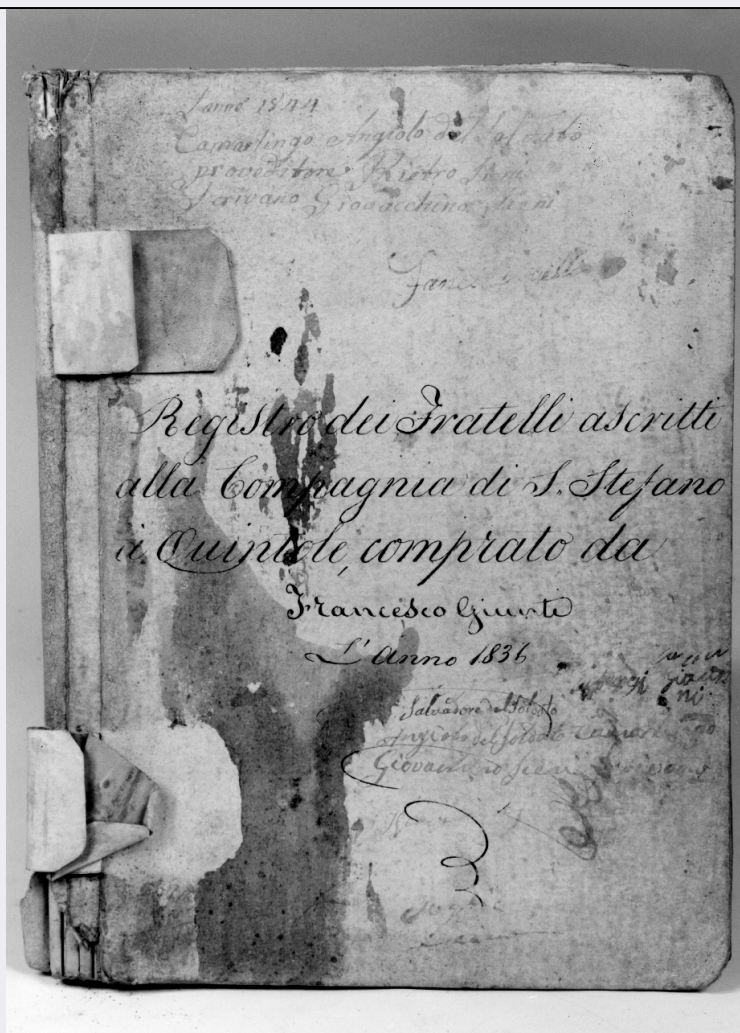 L'anno 1844
Camarlingo Angiolo del Soldato
proveditore Pietro Sieni
Scrivano Giovacchino Sieni
Registro dei Fratelli ascritti
alla Compagnia di S. Stefano
a Quintole, comprato da
Francesco Giunti
L'Anno 1836
Salvadore del Soldato
Angiolo del Soldato Camarlingo
Giovacchino Sieni